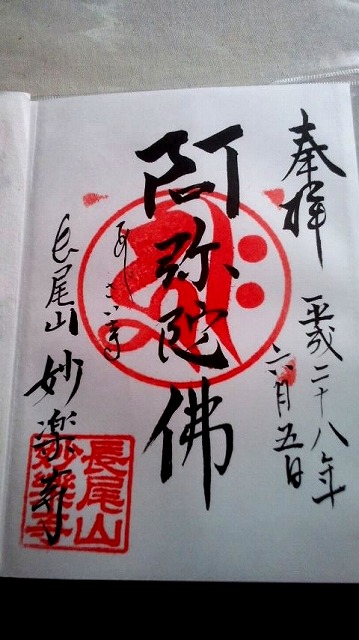 奉拝
平成二十八年
六月五日
阿弥陀佛
あじさい寺
長尾山 妙楽寺
長尾山
妙楽寺